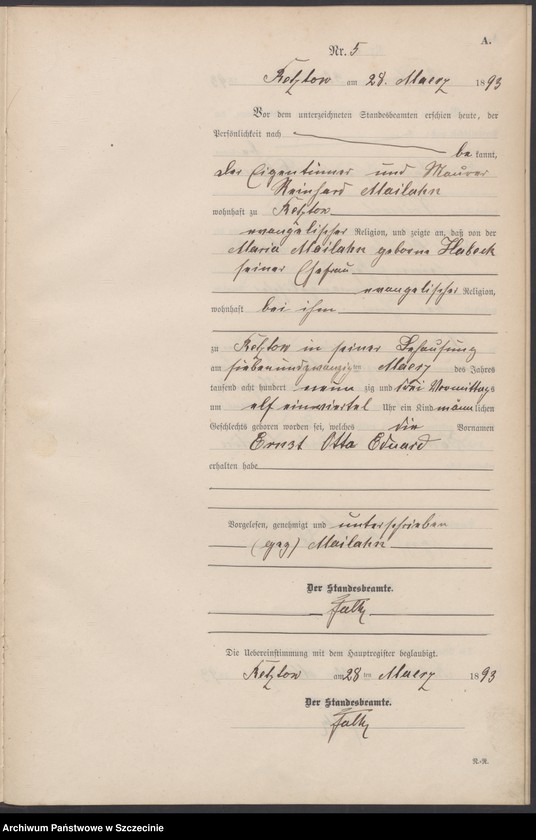 A.
Nr. 5
Retzlow am 28. Maerz 1893
Vor dem unterzeichneten Standesbeamten erschien heute, der
Persönlichkeit nach
bekannt,
der Eigentümer und Maurer
Reinhard Mailahn
wohnhaft zu Retzlow
evangelischer Religion, und zeigte an, daß von der
Maria Mailahn geborne Habeck
seiner Ehefrau
evangelischer Religion,
wohnhaft bei ihm
zu Retzlow in seiner Behausung
am siebenundzwanzigten Maerz des Jahres
tausend acht hundert neunzig und drei Vormittags
um elf einviertel Uhr ein Kind männlichen
Geschlechts geboren worden sei, welches die Vornamen
Ernst Otto Eduard
erhalten habe
Vorgelesen, genehmigt und unterschrieben
(gez) Mailahn
Der Standesbeamte.
Falk
Die Uebereinstimmung mit dem Hauptregister beglaubigt.
Retzlow am 28ten Maerz 1893
Der Standesbeamte.
Falk
R.-R.
Archiwum Państwowe w Szczecinie